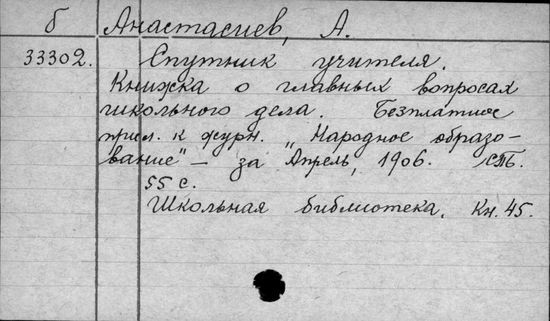 б Анастасиев, А.
33302. Спутник учителя.
Книжка о главных вопросах
школьного дела. Безплатное
прил. к журн. „Народное образо-
вание" — за Апрель, 1906. СПБ.
55 с.
Школьная библиотека. Кн. 45.